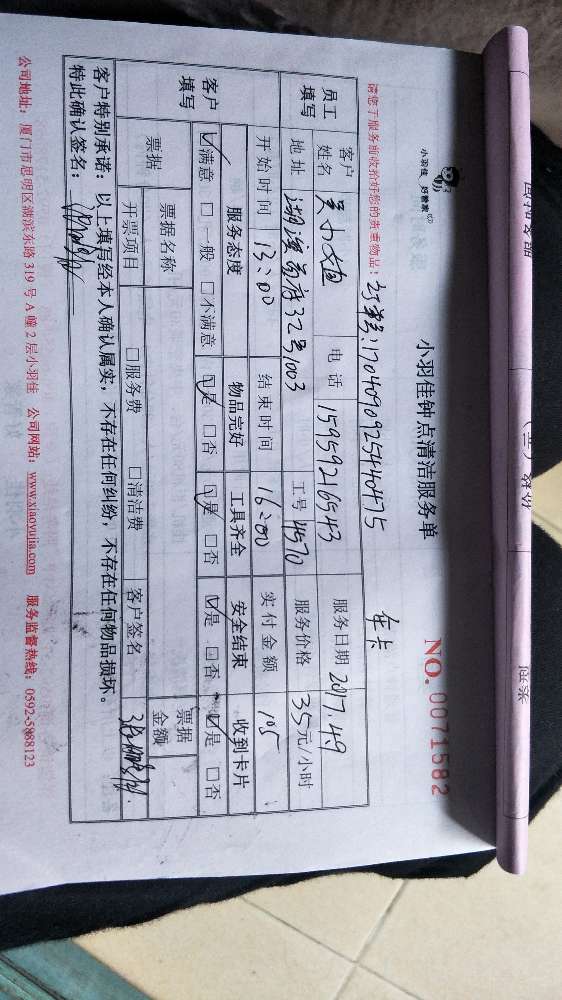 小羽佳 好管家
小羽佳钟点清洁服务单
NO. 0071582
请您于服务前收拾好您的贵重物品！
订单号:1704090925440475 年卡
员工填写 客户姓名 吴小姐 电话 15959216943 服务日期 2017.4.9
地址 32号1003 工号 4570 服务价格 35元/小时
开始时间 13:00 结束时间 16:00 实付金额 105
客户填写 服务态度 物品完好 工具齐全 安全结束 收到卡片
☑满意 □一般 □不满意 ☑是 □否 ☑是 □否 ☑是 □否 ☑是 □否
票据 票据名称 票据金额
开票项目 □服务费 □清洁费 客户签名
客户特别承诺：以上填写经本人确认属实，不存在任何纠纷，不存在任何物品损坏。
特此确认签名：
公司地址：厦门市思明区湖滨东路 319 号 A 幢 2 层小羽佳 公司网站：www.xiaoyujia.com 服务监督热线：0592-5988123